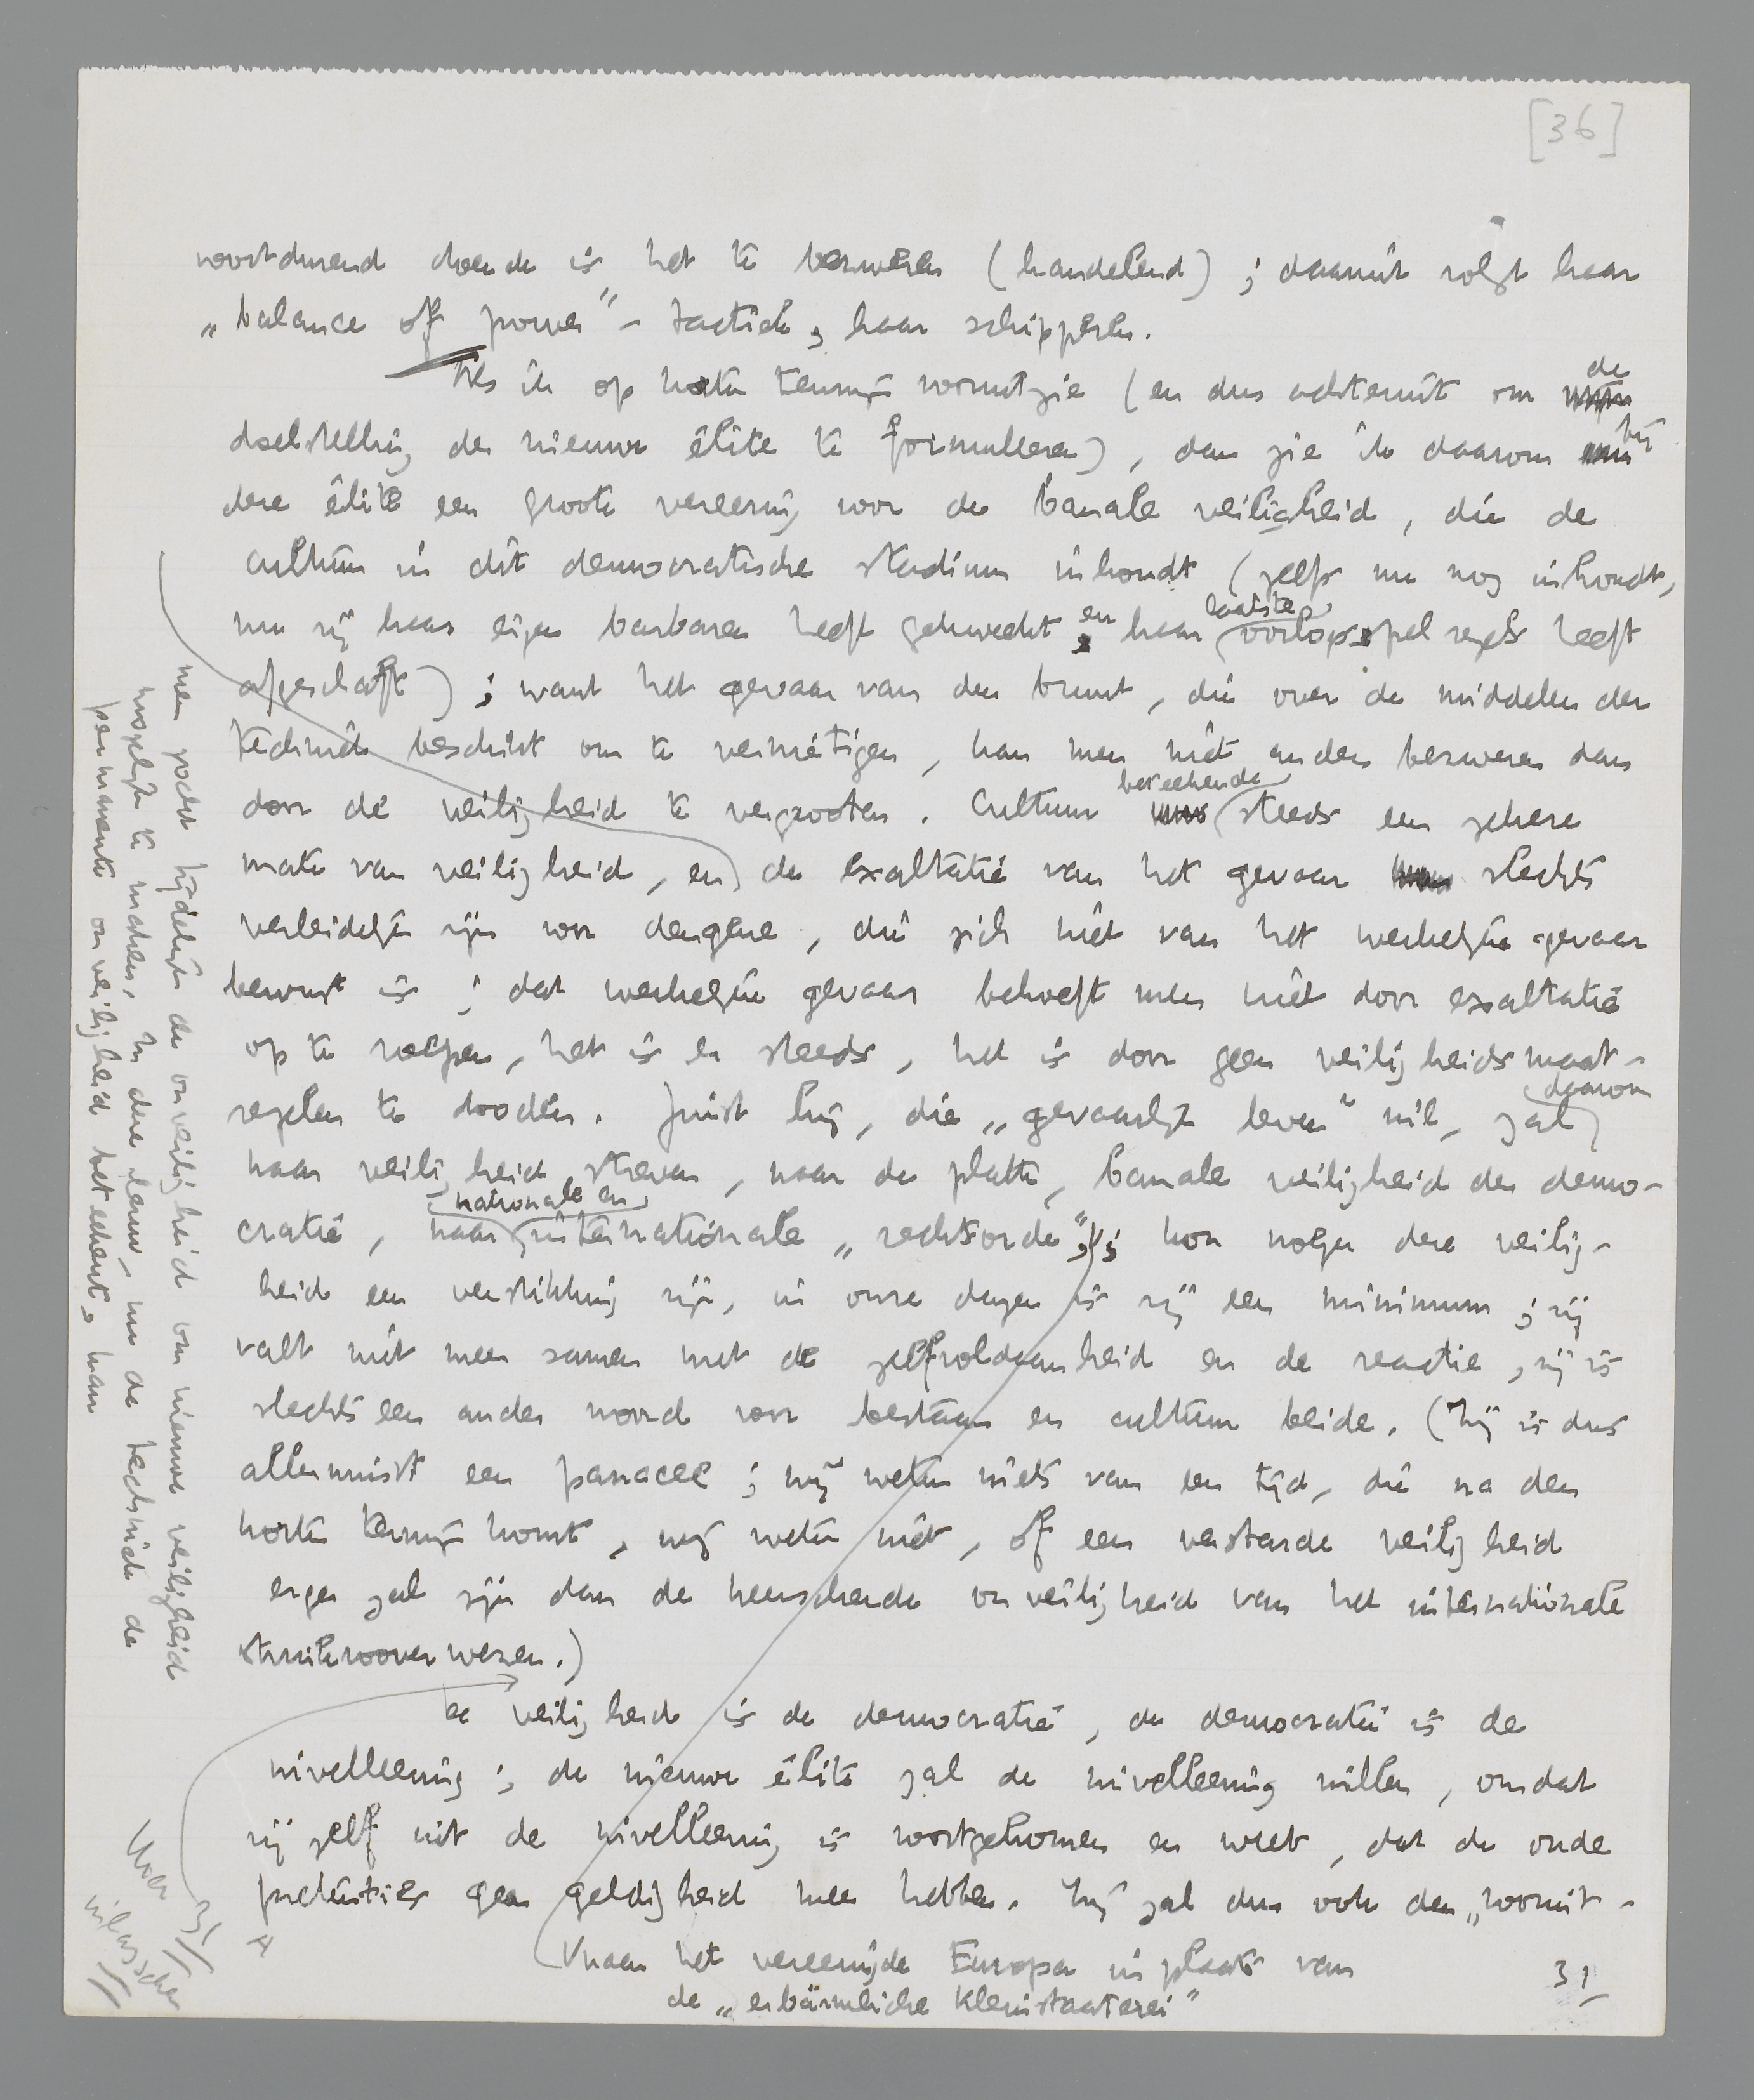 [36]
voortdurend doende is het te bezweren (handelend) ; daaruit volgt haar
„balance of power”-tactiek, haar schipperen.
Als ik op korten termijn vooruitzie (en dus achteruit om de
doelstelling der nieuwe élite te formuleeren), dan zie ik daarom bij
deze élite een groote vereering voor de banale veiligheid, die de
cultuur in dit democratische stadium inhoudt (zelfs nu nog inhoudt,
nu zij haar eigen barbaren heeft gekweekt en haar laatste oorlogsspelregels heeft
afgeschaft) ; want het gevaar van den brunt, die over de middelen der
techniek beschikt om te vernietigen, kan men niet anders bezweren dan
door de veiligheid te vergrooten. Cultuur beteekende steeds een zekere
mate van veiligheid, en de exaltatie van het gevaar slechts
verleidelijk zijn voor dengene, die zich niet van het werkelijke gevaar
bewust is ; dat werkelijke gevaar behoeft men niet door exaltatie
op te roepen, het is er steeds, het is door geen veiligheidsmaat-
regelen te dooden. Juist hij, die „gevaarlijk leven” wil, zal daarom
naar veiligheid streven, naar de platte, banale veiligheid der demo-
cratie, naar nationale en internationale „rechtsorde” ; kon vroeger deze veilig-
heid een verstikking zijn, in onze dagen is zij een minimum ; zij
valt niet meer samen met de zelfvoldaanheid en de reactie, zij is
slechts een ander woord voor bestaan en cultuur beide. (Zij is dus
allerminst een panacee ; wij weten niets van een tijd, die na den
korten termijn komt, wij weten niet, of een verstarde veiligheid
erger zal zijn dan de heerschende onveiligheid van het internationale
struikrooverwezen.)
De veiligheid is de democratie, de democratie is de
nivelleering ; de nieuwe élite zal de nivelleering willen, omdat
zij zelf uit de nivelleering is voortgekomen en weet, dat de oude
pretenties geen geldigheid meer hebben. Zij zal dus ook den „vooruit-
naar het vereenigde Europa in plaats van
de „erbärmliche Kleinstaaterei”
31
men zocht tijdelijk de onveiligheid om nieuwe veiligheid
mogelijk te maken. In deze eeuw, nu de techniek de
permanente onveiligheid beteekent, kan